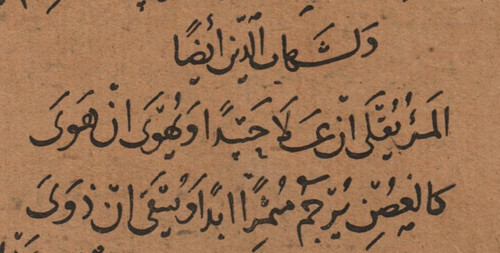 ولشهاب الدين أيضًا
المرءُ يُقلَى ان عَلا جَيّدًا ويُهوَى ان هَوَى
كالغصنِ يُرجمُ مُثمرًا ابدًا ويُتقَى ان ذوَى